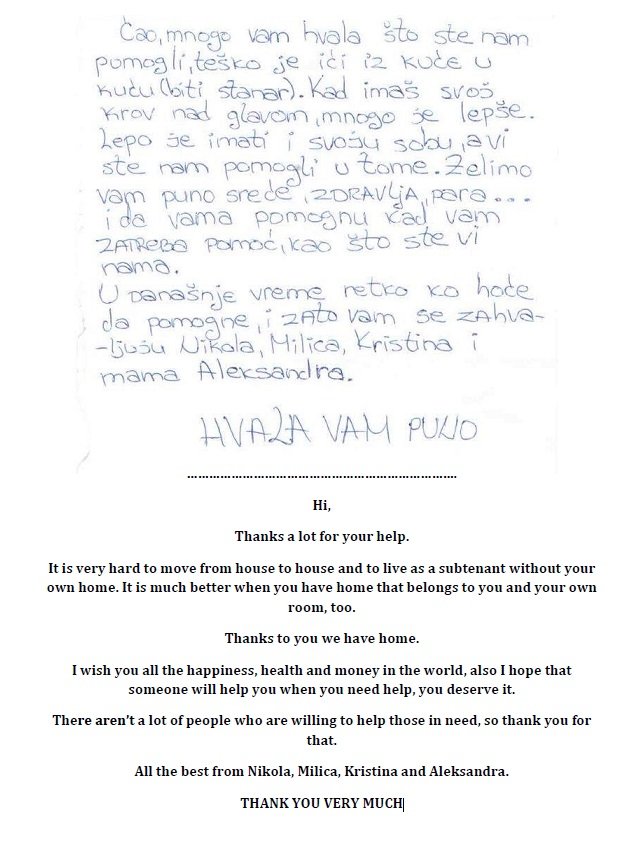 Ćao, mnogo vam hvala što ste nam
pomogli, teško je ići iz kuće u
kuću (biti stanar). Kad imaš svoj
krov nad glavom, mnogo je lepše.
Lepo je imati i svoju sobu, a vi
ste nam pomogli u tome. Želimo
vam puno sreće, ZDRAVLJA, para...
i da vama pomognu kad vam
ZATREBA pomoć, kao što ste vi
nama.
U današnje vreme retko ko hoće
da pomogne, i zato vam se zahva-
-ljuju Nikola, Milica, Kristina i
mama Aleksandra.
HVALA VAM PUNO
........................................................................
Hi,
Thanks a lot for your help.
It is very hard to move from house to house and to live as a subtenant without your
own home. It is much better when you have home that belongs to you and your own
room, too.
Thanks to you we have home.
I wish you all the happiness, health and money in the world, also I hope that
someone will help you when you need help, you deserve it.
There aren't a lot of people who are willing to help those in need, so thank you for
that.
All the best from Nikola, Milica, Kristina and Aleksandra.
THANK YOU VERY MUCH